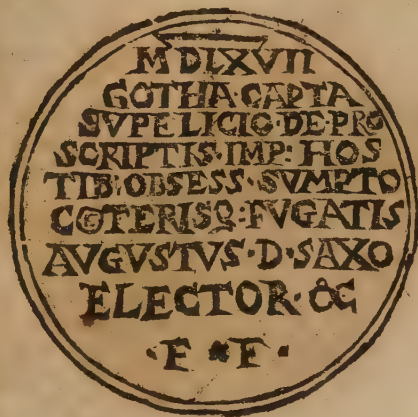 MDLXVII
GOTHA·CAPTA
SVPELICIO·DE·PRO
SCRIPTIS·IMP:HOS
TIB:OBSESS·SVMPTO
COETERISQ:FVGATIS
AVGVSTVS·D·SAXO
ELECTOR·&C
·F * F·